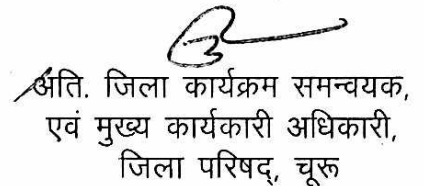 अति. जिला कार्यक्रम समन्वयक,
एवं मुख्य कार्यकारी अधिकारी,
जिला परिषद्, चूरू